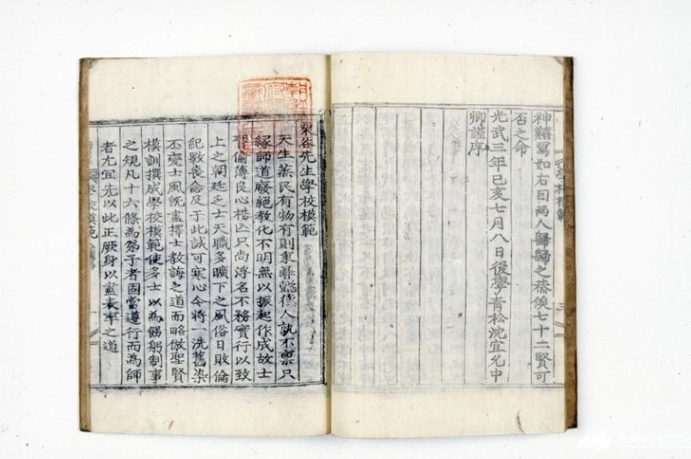 寫如右因兩人歸之 俟七十二賢可
否之命
光武三年己亥七月八日後學青松沈宜允中
卿謹序
學校模範
栗谷先生學校模範
天生蒸民有物有則秉彝懿德人孰不稟只
緣師道廢絕敎化不明無以振起作成故士
習偷薄良心梏亡只尚浮名不務實行以致
上之朝廷乏士天職多曠下之風俗日敗倫
紀斁喪念及于此誠可寒心今將一洗舊染
丕變士風旣盡擇士敎誨之道而略倣聖賢
模訓撰成學校模範使多士以為飭躬制事
之規凡十六條為弟子者固當遵行而為師
者尤宜先以此正厥身以盡表率之道
學校模範